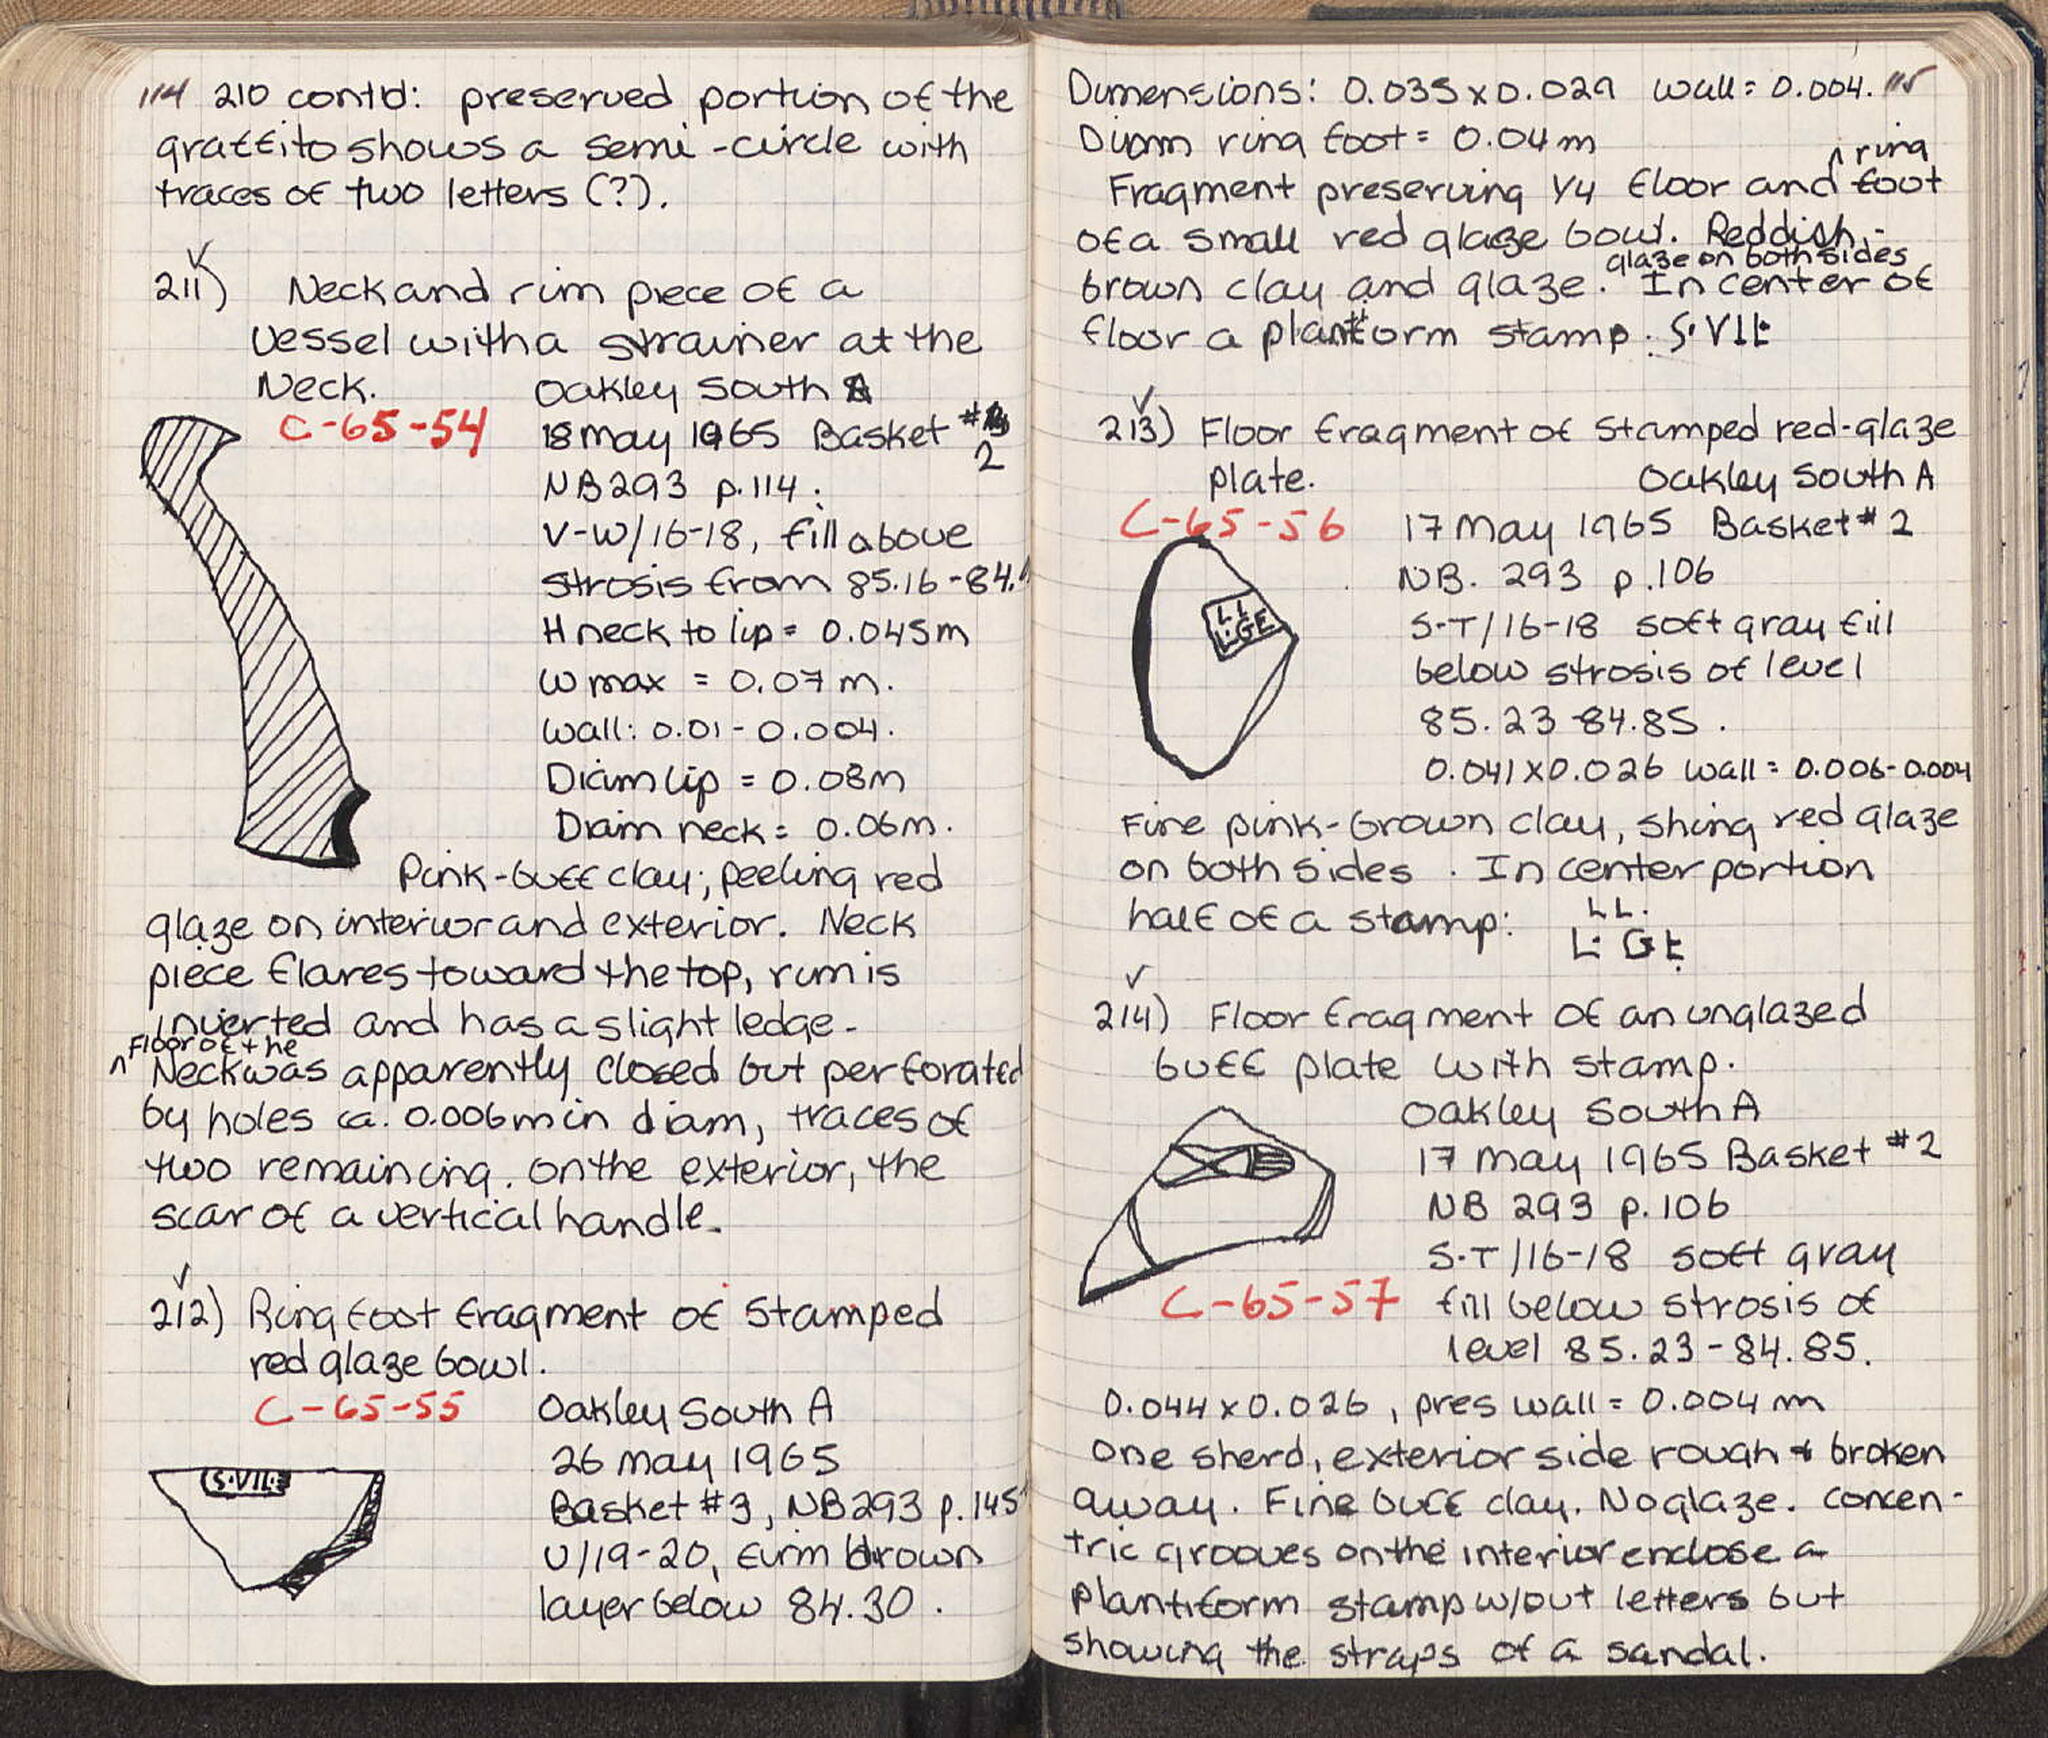 114 210 cont'd: preserved portion of the
graffito shows a semi-circle with
traces of two letters (?).
211) Neck and rim piece of a
vessel with a strainer at the
Neck. Oakley South A
C-65-54
18 May 1965 Basket #
2
NB293 p.114.
V-W/16-18, fill above
strosis from 85.16-84.
H neck to lip = 0.045m
W max = 0.07m.
Wall: 0.01-0.004.
Diam lip = 0.08m
Diam neck = 0.06m.
Pink-buff clay; peeling red
glaze on interior and exterior. Neck
piece flares toward the top, rim is
inverted and has a slight ledge.
Floor of the
Neck was apparently closed but perforated
by holes ca. 0.006m in diam, traces of
two remaincing. On the exterior, the
scar of a vertical handle.
212) Ring foot fragment of stamped
red glaze bowl.
C-65-55 Oakley South A
26 May 1965
S·VILE
Basket #3, NB293 p.145
U/19-20, firm brown
layer below 84.30.
Dimensions: 0.035x0.029 wall = 0.004. 115
Diam ring foot = 0.04m
ring
Fragment preserving 1/4 floor and foot
of a small red glaze bowl. Reddish-
glaze on both sides
brown clay and glaze. In center of
floor a plantiform stamp: S·VIL
213) Floor fragment of stamped red-glaze
plate. Oakley South A
C-65-56 17 May 1965 Basket #2
NB. 293 p.106
LL
L·GE
S-T/16-18 soft gray fill
below strosis of level
85.23-84.85.
0.041x0.026 wall = 0.006-0.004
Fine pink-brown clay, shing red glaze
on both sides. In center portion
half of a stamp: LL.
L· GE
214) Floor fragment of an unglazed
buff plate with stamp.
Oakley South A
17 May 1965 Basket #2
NB 293 p.106
S-T/16-18 soft gray
C-65-57 fill below strosis of
level 85.23-84.85.
0.044x0.026, pres wall = 0.004m
One sherd, exterior side rough & broken
away. Fine buff clay. No glaze. Concen-
tric grooves on the interior enclose a
plantiform stamp w/out letters but
showing the straps of a sandal.